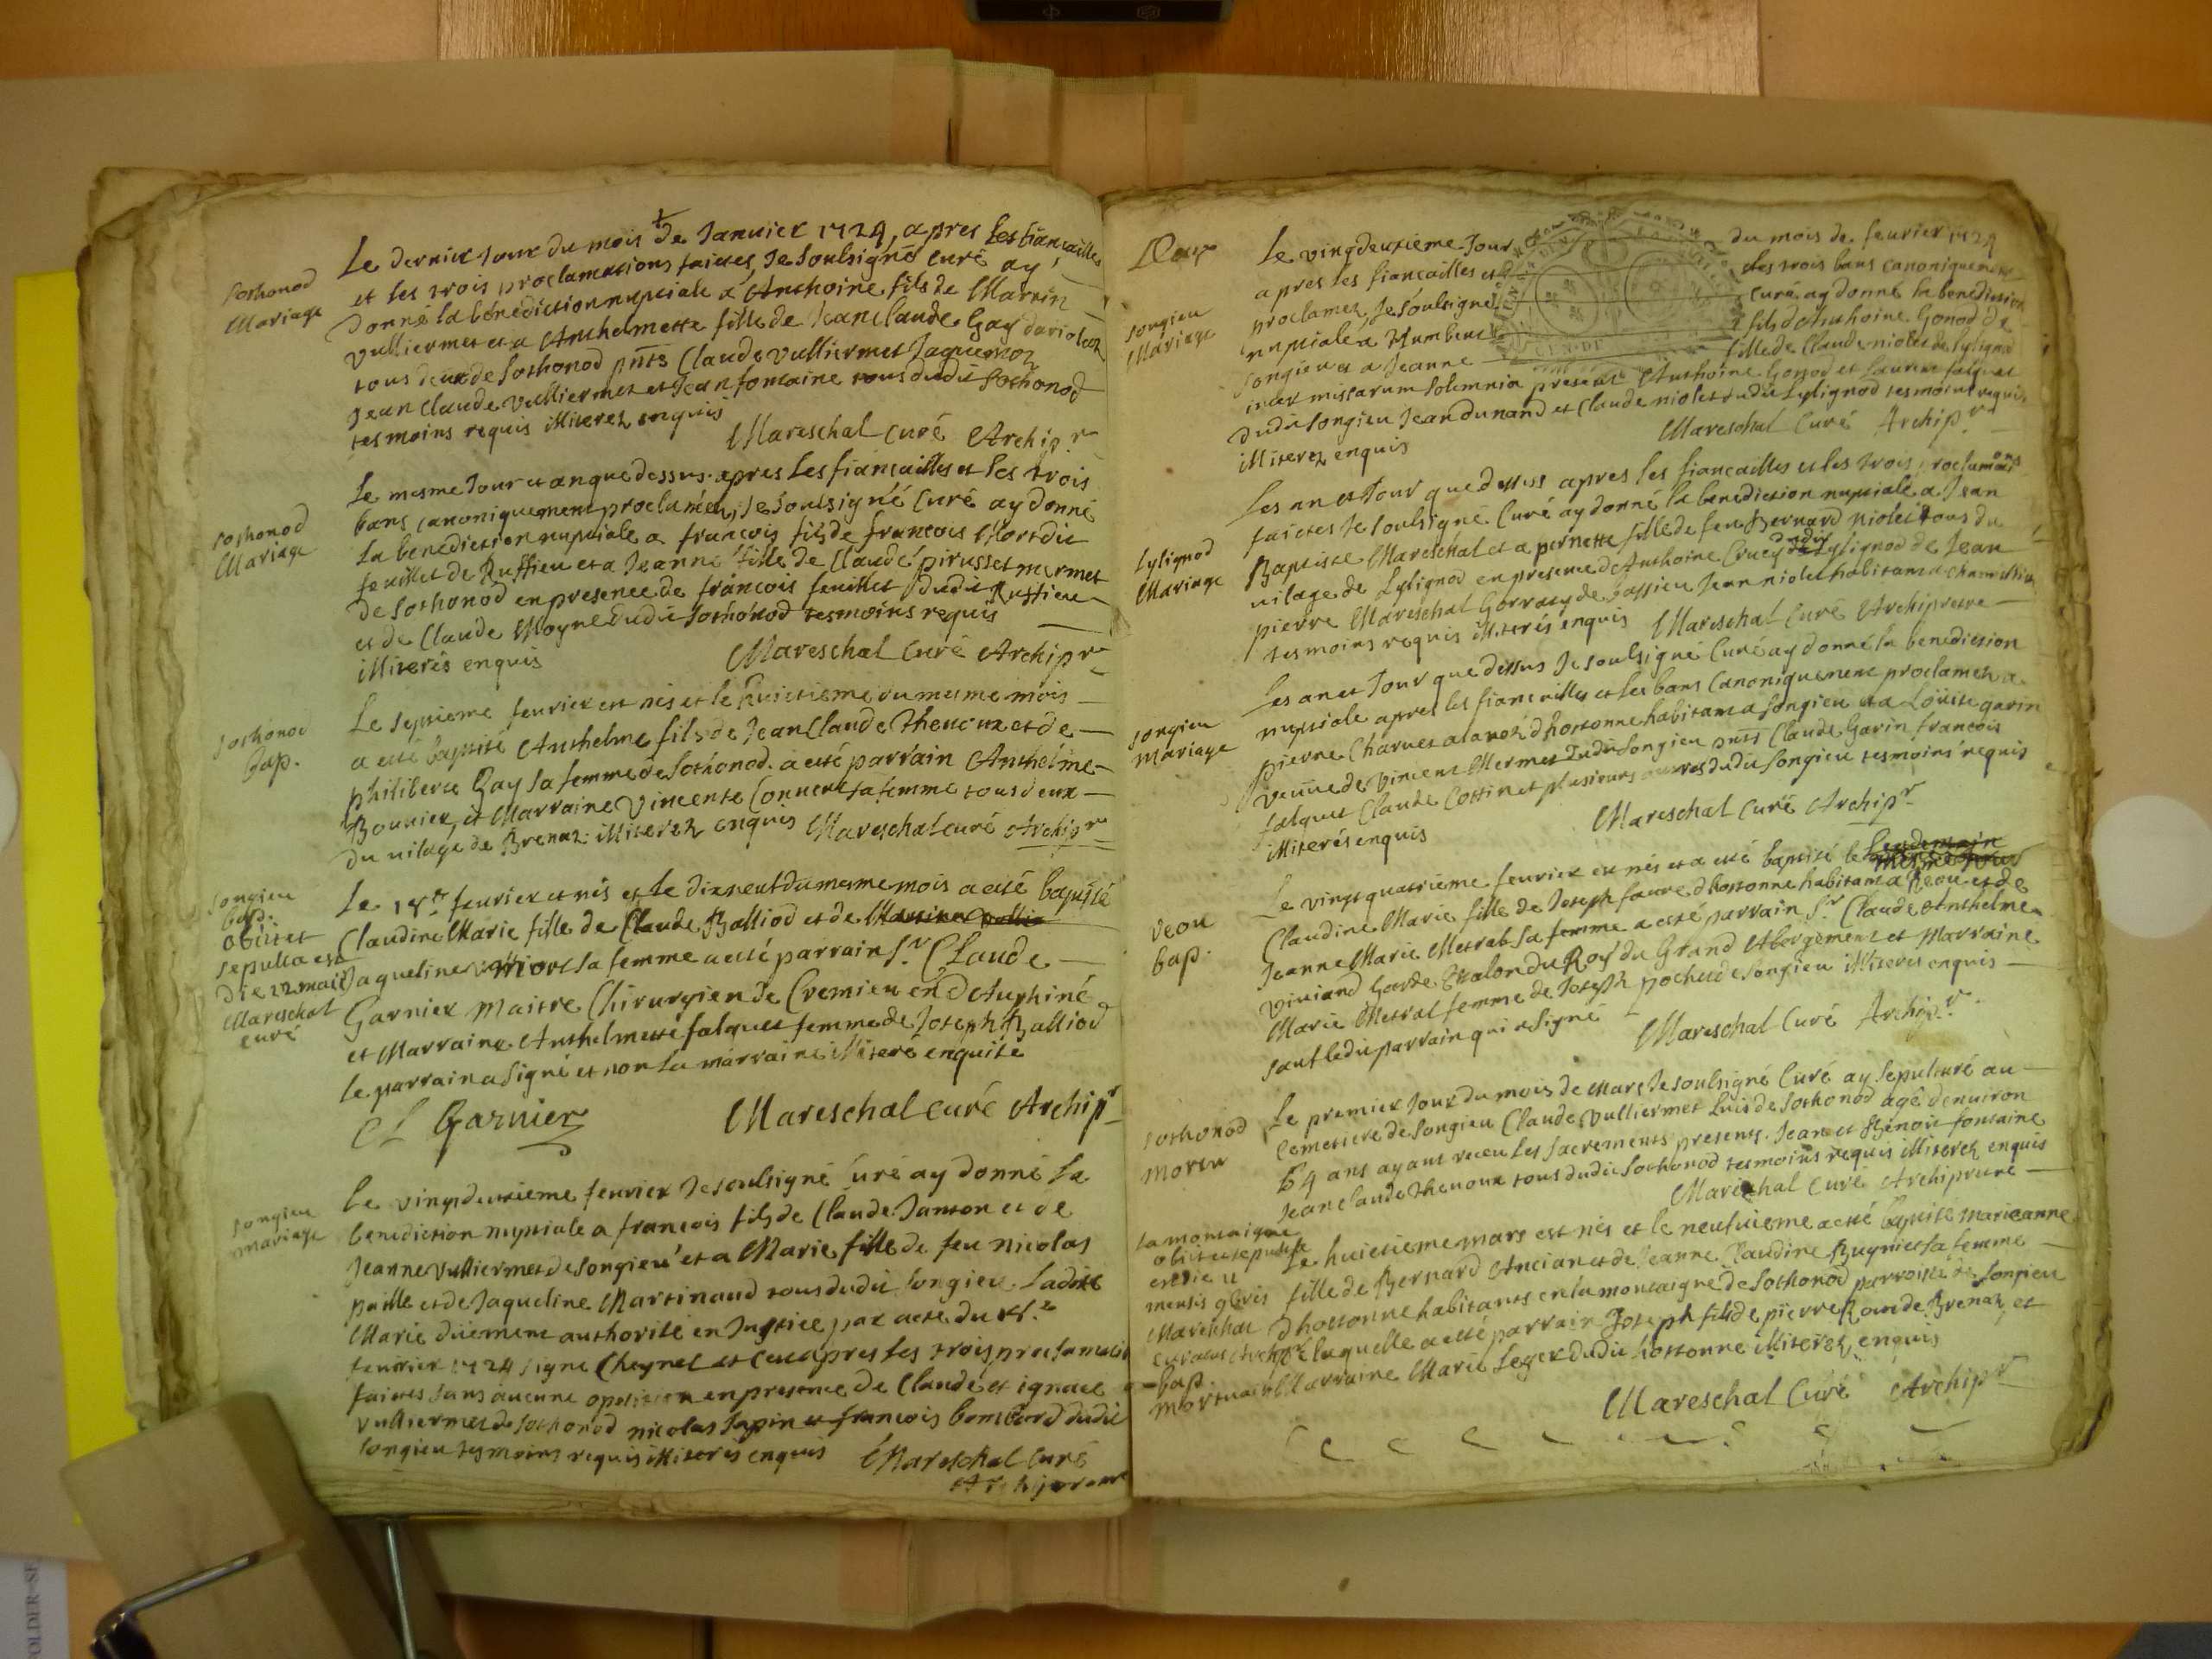 Sothonod
Mariage
Le dernier Jour du mois de Januier 1724, apres les fiancailles
et les trois proclamations faictes, Je Soulsigné Curé ay
donné la bénédiction nuptiale a Anthoine fils de Martin
Vulliermet et a Anthelmette fille de Jean claude Gay
tous deux de Sothonod pnts Claude Vulliermet Jaquemoz
Jean Claude Vulliermet et Jean fontaine tous dudit Sothonod
tesmoins requis illiterez enquis
Mareschal Curé Archip.r
Sothonod
Mariage
Le mesme Jour et an que dessus apres les fiancailles et les trois
bans canoniquement proclamez, Je Soulsigné Curé ay donné
la benediction nuptiale a francois fils de francois
feuillet de Ruffieu et a Jeanne fille de Claude pirusset mermet
de Sothonod en presence de francois feuillet dudit Ruffieu
et de Claude Moyne dudit Sothonod tesmoins requis
illiterés enquis
Mareschal Curé Archipr
Sothonod
bap.
Le septieme feurier est nés et le huictieme du mesme mois
a esté baptisé Anthelme fils de Jean Claude Thenoux et de
philiberte Gay sa femme de Sothonod. a esté parrain Anthelme
Bouuier, et Marraine Vincente Conuert sa femme tous deux
du uilage de Brenaz illiterez enquis Mareschal curé Archipr
Songieu
bap.
obiit et
sepulta est
die 22 maii
Mareschal
curé
Le 18me feurier et nés et le dixneuf du mesme mois a esté baptisé
Claudine Marie fille de Claude Balliod et de
Jaqueline sa femme a esté parrain Sr. Claude
Garnier maitre Chirurgien de Cremieu en dAuphiné
et Marraine Anthelmette falquet femme de Joseph Balliod
le parrain a signé et non la marraine illiteré enquise
Cl Garnier
Mareschal curé Archipr
Songieu
mariage
le vingtdeuxieme feurier Je soulsigné Curé ay donné la
benediction nuptiale a francois fils de Claude Janton et de
Jeanne Vulliermet de Songieu et a Marie fille de feu nicolas
paille et de Jaqueline Martinaud tous dudit Songieu. Ladite
Marie düement authorisé en Justice par acte du
feurier 1724 signé Cheynel et ce apres les trois proclamations
faictes sans aucune oposition en presence de Claude et ignace
vulliermet de Sothonod nicolas Sapin et francois dudit
Songieu tesmoins requis illiterés enquis Mareschal Curé
Archiprestre
Deux
songieu
Mariage
Le vingdeuxieme Jour du mois de feurier 1724
apres les fiancailles et les trois bans canoniquement
proclamez Je Soulsigné Curé ay donné la benediction
nuptiale a Humbert fils d'Anthoine Gonod de
Songieu et a Jeanne fille de Claude niolet de lylignod
inter missarum solemnia presents Anthoine Gonod et Laurent falquet
dudit songieu Jean Dunand et Claude niolet dudit Lylignod tesmoins requis
illiterez enquis
Mareschal Curé Archip.r
Lylignod
Mariage
Les an et Jour que dessus apres les fiancailles et les trois proclamaõns
faictes Je soulsigné Curé ay donné la benediction nuptiale a Jean
Baptiste Mareschal et a pernette fille de feu Bernard niolet tous du
uilage de Lylignod en presence d'Anthoine Cruey dudit Lylignod de Jean
pierre Mareschal Gorraty de passieu Jean niolet habitant a
tesmoins requis illiterés enquis Mareschal Curé Archiprestre
songieu
mariage
Les an et Jour que dessus Je soulsigné Curé ay donné la benediction
nuptiale apres les fiancailles et les bans Canoniquement proclamez a
pierre Charuet dhostonne habitant a Songieu et a Loüise garin
veuue de vincent Mermet dudit Songieu pnts Claude Garin francois
falquet Claude Cottin et plusieurs autres dudit Songieu tesmoins requis
illiterés enquis
Mareschal Curé Archipr
veou
bap.
Le vingt quatrieme feurier est nés et a esté baptisé le lendemain
Claudine Marie fille de Joseph faure dhostonne habitant a veou et de
Jeanne Marie Metral sa femme a esté parrain Sr Claude Anthelme
viuiand Garde Etalon du Roy du Grand Abergement et Marraine
Marie Metral femme de Joseph pochet de Songieu illiterés enquis
sauf ledit parrain qui a signé
Mareschal Curé Archip.r
Sothonod
mortu
Le premier Jour du mois de mars Je soulsigné Curé ay sepulturé au
Cemetiere de songieu Claude Vulliermet Luis de Sothonod agé denuiron
64 ans ayant receu les sacrements presents. Jean et Benoit fontaine
Jean claude Thenoux tous dudit Sothonod tesmoins requis illiterez enquis
Mareschal Curé Archiprestre
La montaigne
obiit et sepulta
est die 11
mensis 9bris
Mareschal
curatus Archipr
bap.
mortuaire
Le huictieme mars est nés et le neufuieme a esté baptisé marieanne
fille de Bernard Ancian et de Jeanne Claudine Bugniet sa femme
dhostonne habitants en la montaigne de Sothonod parroisse de Songieu
de laquelle a esté parrain Joseph fils de pierre de Brenaz et
Marraine Marie Leger dudit hostonne illiterez enquis
Mareschal Curé Archipr